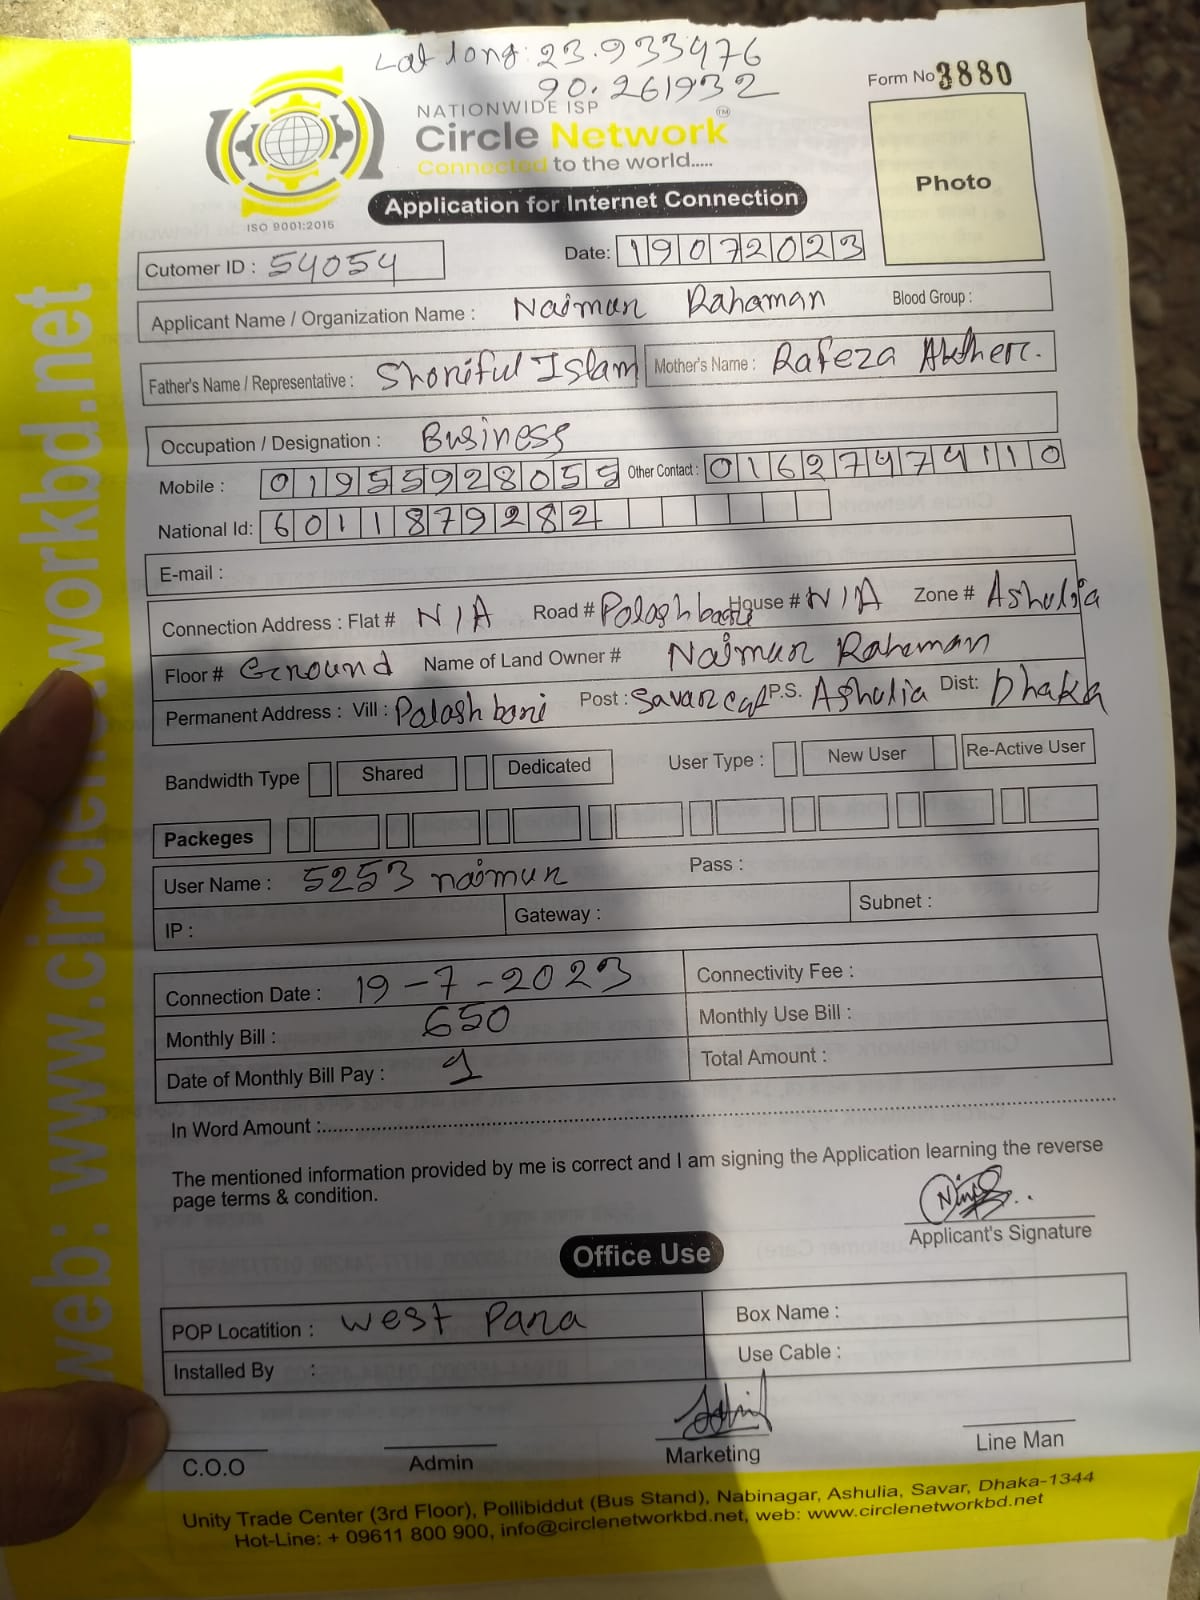 Lat long: 23.933476
90.261932
Form No 3880
NATIONWIDE ISP
Circle Network TM
Connected to the world.....
Application for Internet Connection
Photo
ISO 9001:2015
Cutomer ID : 54054
Date: 19072023
Applicant Name / Organization Name : Naimur Rahaman Blood Group :
Father's Name / Representative : Shoriful Islam Mother's Name : Rafeza Akther.
Occupation / Designation : Business
Mobile : 01955928055 Other Contact : 01627474110
National Id: 6011879282
E-mail :
Connection Address : Flat # N/A Road # Palashbari House # N/A Zone # Ashulia
Floor # Ground Name of Land Owner # Naimur Rahaman
Permanent Address : Vill : Palashbari Post : Savar Cat P.S. Ashulia Dist: Dhaka
Bandwidth Type Shared Dedicated User Type : New User Re-Active User
Packeges
User Name : 5253 naimur Pass :
IP : Gateway : Subnet :
Connection Date : 19-7-2023 Connectivity Fee :
Monthly Bill : 650 Monthly Use Bill :
Date of Monthly Bill Pay : 1 Total Amount :
In Word Amount :
The mentioned information provided by me is correct and I am signing the Application learning the reverse
page terms & condition.
Applicant's Signature
Office Use
POP Locatition : West Para Box Name :
Installed By : Use Cable :
C.O.O Admin Marketing Line Man
Unity Trade Center (3rd Floor), Pollibiddut (Bus Stand), Nabinagar, Ashulia, Savar, Dhaka-1344
Hot-Line: + 09611 800 900, info@circlenetworkbd.net, web: www.circlenetworkbd.net
web: www.circlenetworkbd.net